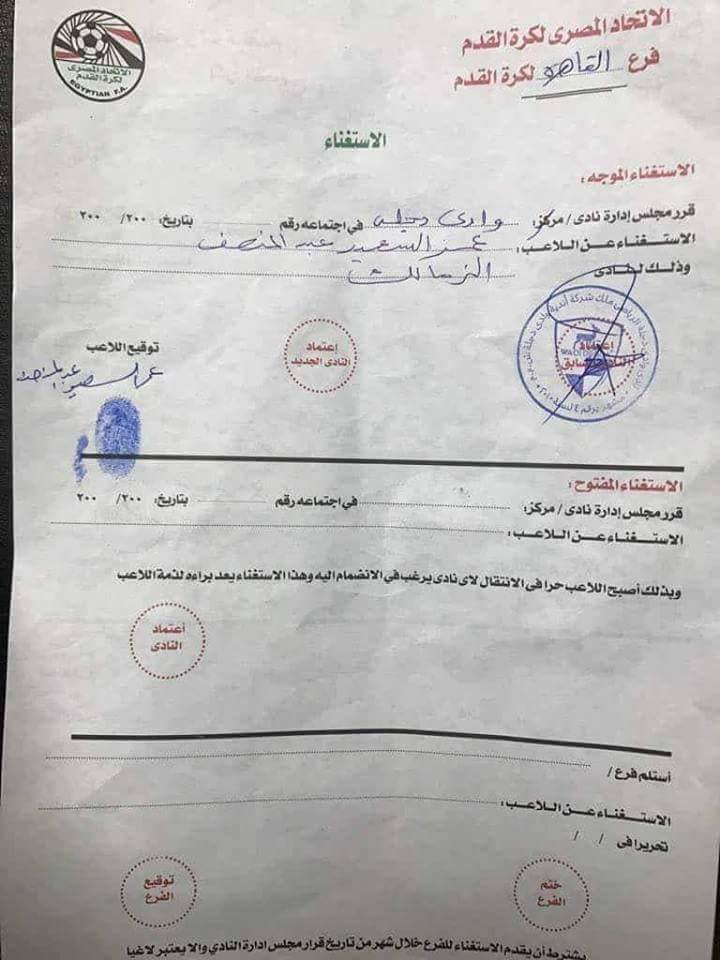 الاتحاد المصرى لكرة القدم
فرع القاهرة لكرة القدم
الاتحاد المصرى
لكرة القدم
EGYPTIAN F.A.
الاستغناء
الاستغناء الموجه :
قرر مجلس إدارة نادى / مركز : وادى دجلة فى اجتماعه رقم بتاريخ: / ٢٠٠ ٢٠٠
الاستغناء عن اللاعب : عمر السعيد عبد المنصف
وذلك لنادى الزمالك
توقيع اللاعب
إعتماد
النادى الجديد
إعتماد
النادى السابق
عمر السعيد عبد
الاستغناء المفتوح :
قرر مجلس إدارة نادى / مركز : فى اجتماعه رقم بتاريخ: / ٢٠٠ ٢٠٠
الاستغناء عن اللاعب :
وبذلك أصبح اللاعب حرا فى الانتقال لاى نادى يرغب في الانضمام اليه وهذا الاستغناء يعد براءه لذمة اللاعب
أعتماد
النادى
أستلم فرع /
الاستغناء عن اللاعب :
تحريرا فى / /
ختم
الفرع
توقيع
الفرع
يشترط أن يقدم الاستغناء للفرع خلال شهر من تاريخ قرار مجلس ادارة النادي والا يعتبر لاغيا